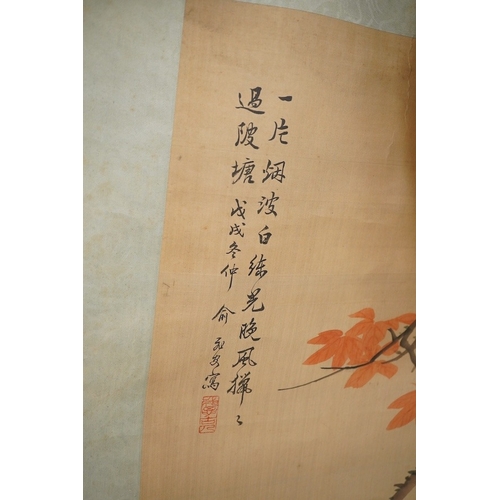 一片烟波白练光晚风獵〻
過陂塘 戊戌冬仲 俞
寫